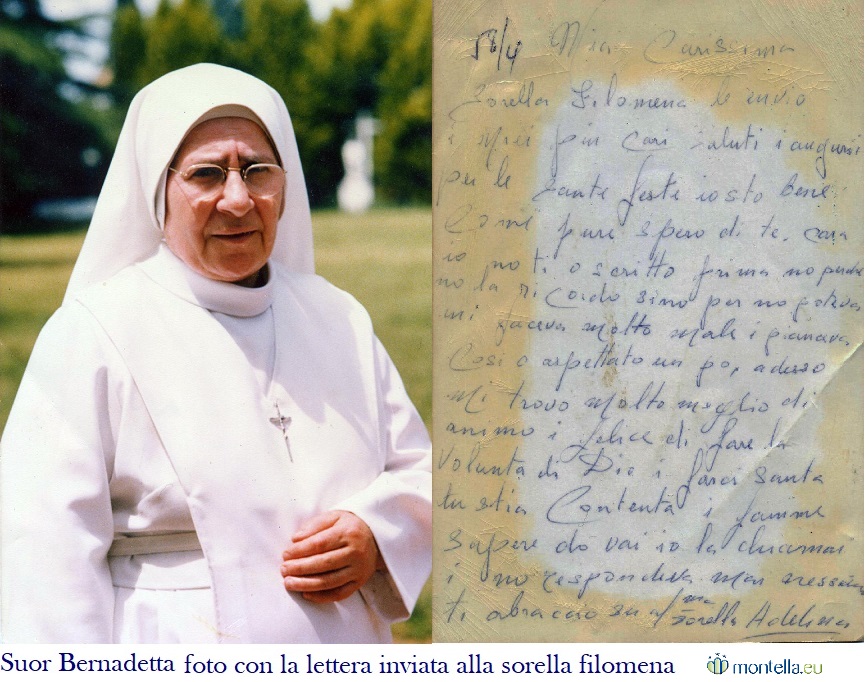 58/4 Mia Carissima
Sorella Filomena le invio
i miei piu cari saluti i auguri
per le sante feste io sto bene
Come pure spero di te. cara
io no ti o scritto prima no perche
no la ricordo sino per no poteva
mi faceva molto male i
Cosi o aspettato un po, adesso
mi trovo molto meglio di
animo i felice di fare la
volunta di Dio i farci santa
tu stia Contenta i famme
sapere do vai io la chiamai
i no rispondeva mai nessuno
ti abraccio tua aff/ma sorella Adelina
Suor Bernadetta foto con la lettera inviata alla sorella filomena
montella.eu